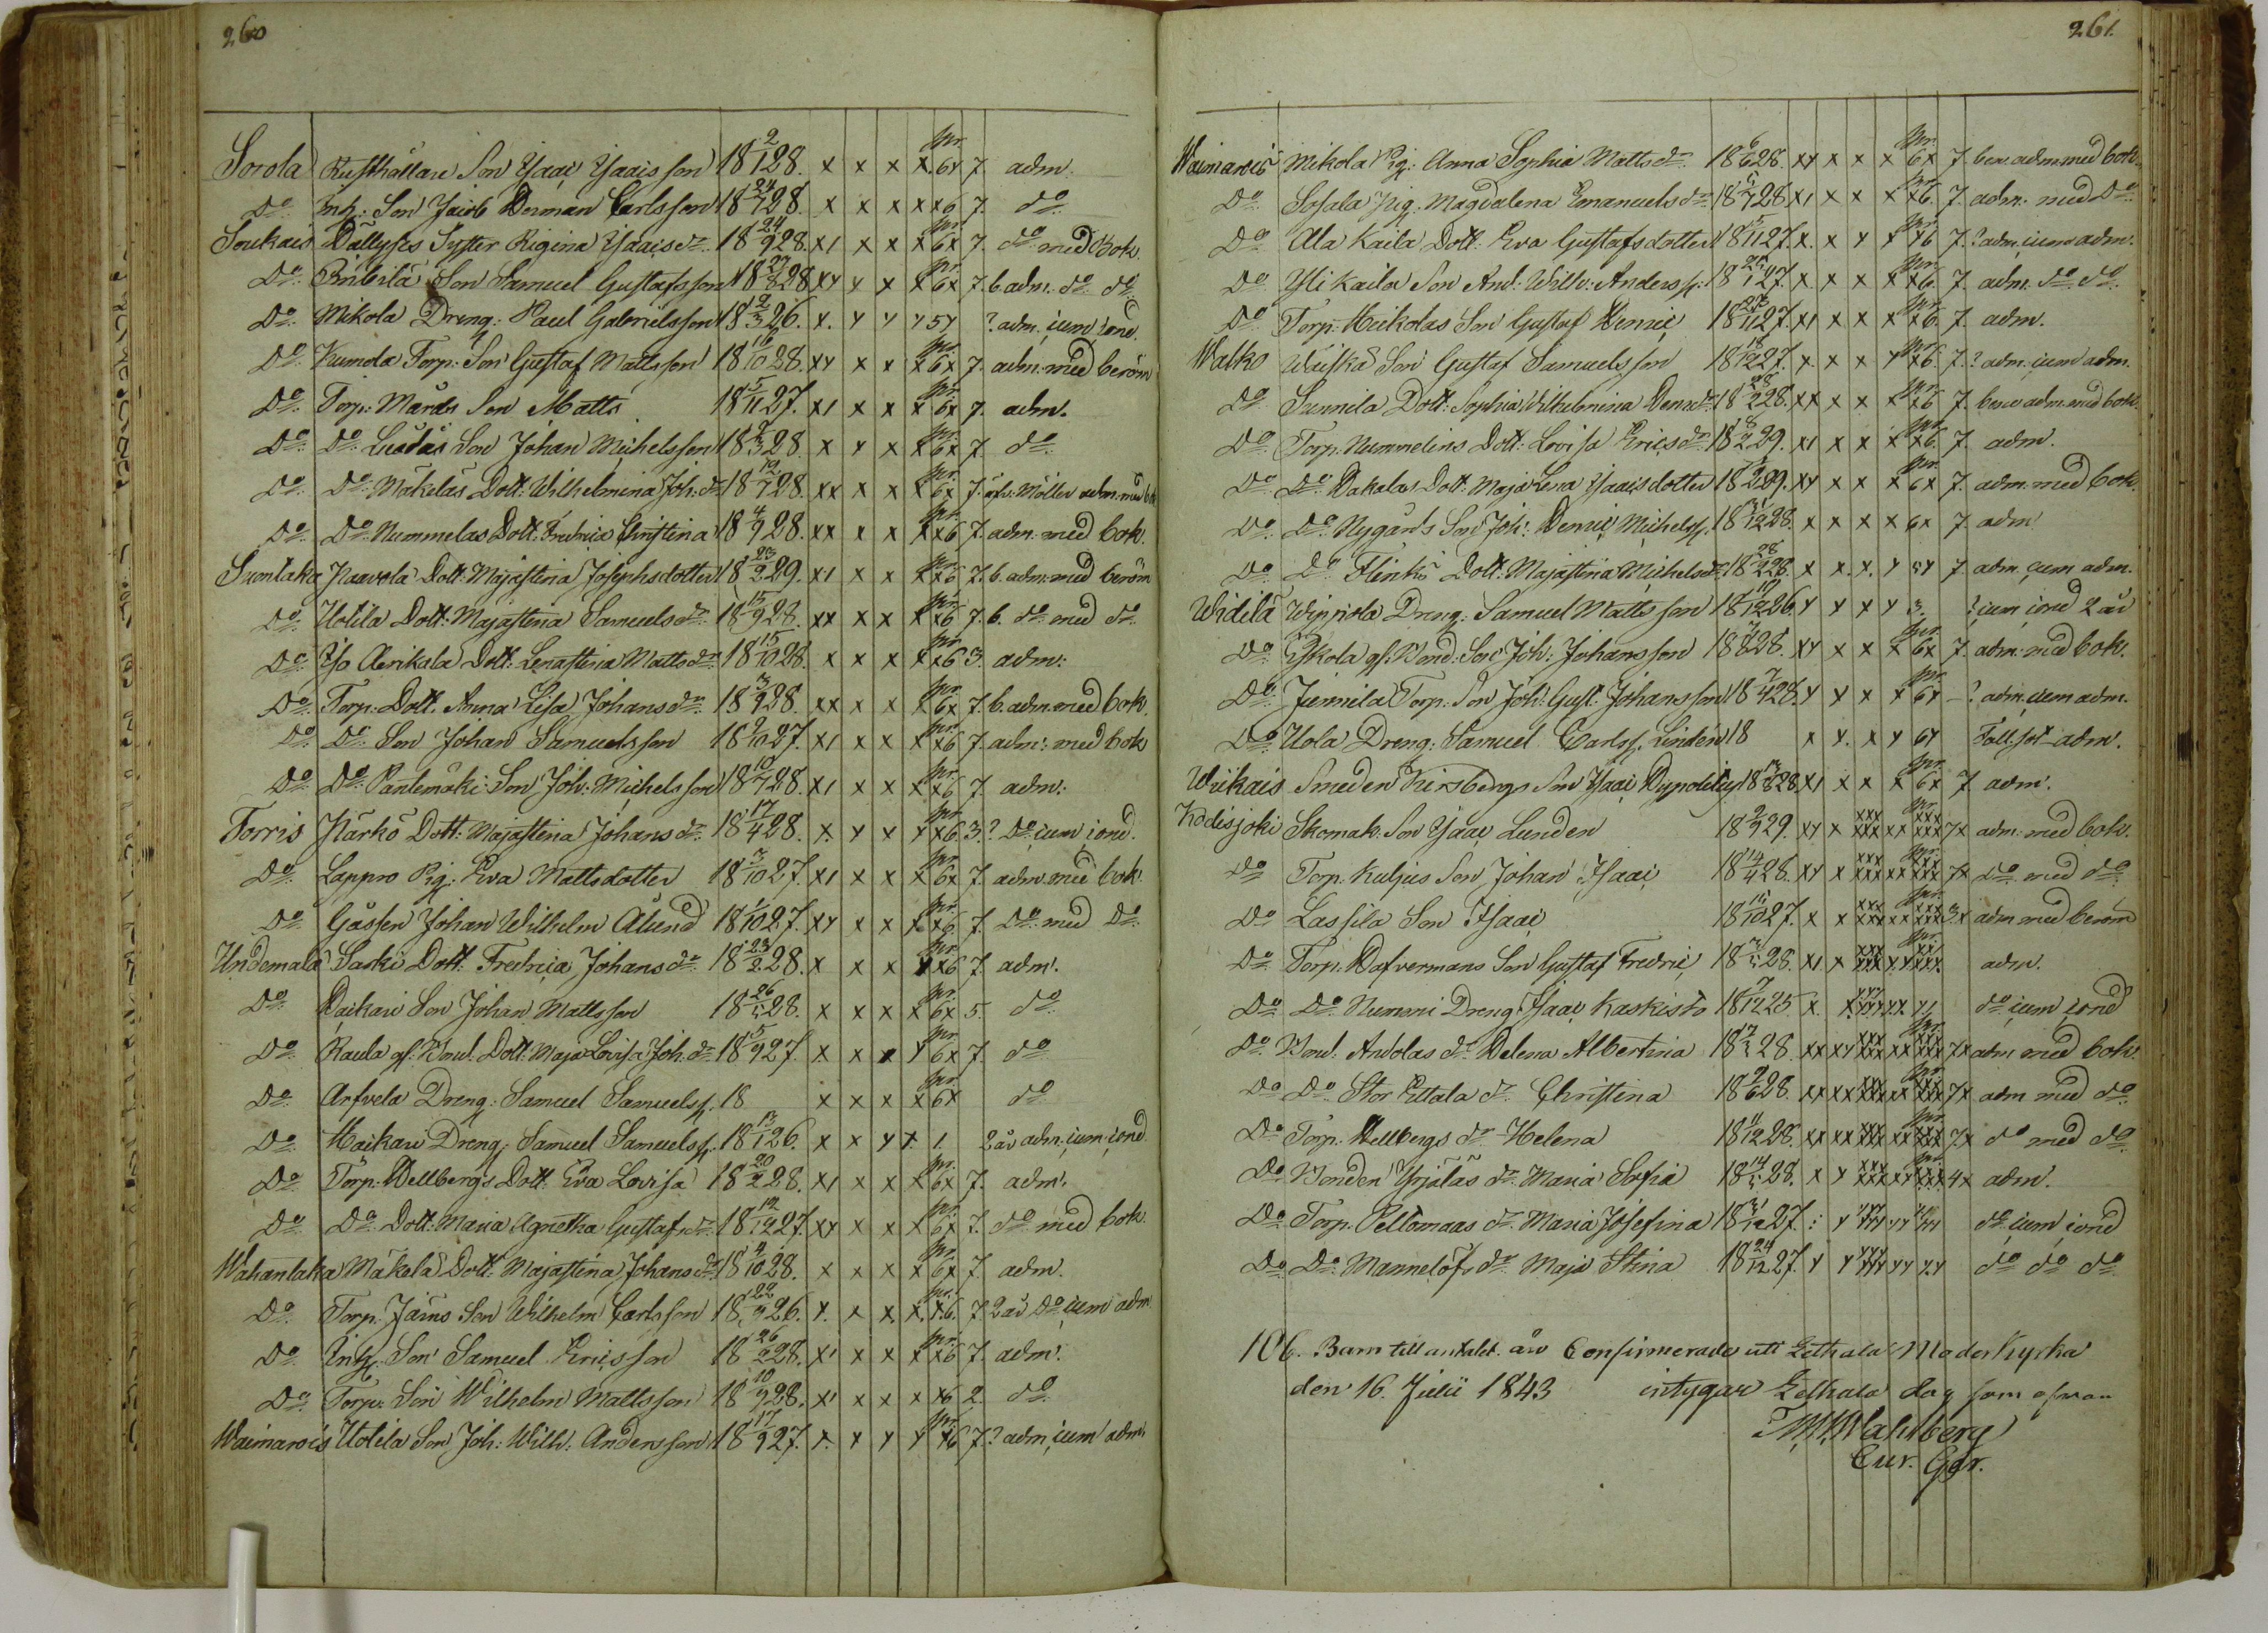 260
Sorola Rusthållare Son Isaac Isaacsson 18 2/1 28. x x x x. 6x 7. adm.
Do Inh: Son Jacob Herman Carlsson 18 24/7 28. x x x x x6 7. do
Soukais Dällyks Syster Regina Isaacsdr 18 24/9 28. x1 x x x 6x 7. do med Bok.
Do Son Samuel Gustafsson 18 27/8 28 xx x x x 6x 7. b adm. do do
Do Mikola Dreng: Paul Gabrielsson 18 2/3 26. x. x x x 5x ? adm. cum cond.
Do Kumola Torp: Son Gustaf Mattsson 18 16/10 28 xx x x x 6x 7. adm. med beröm
Do Torp: Mårds Son Matts 18 5/11 27. x1 x x x 6x 7. adm.
Do Do Son Johan Michelsson 18 2/3 28. x x x x 6x 7 do
Do Do Mäkeläs Dott: Wilhelmina Joh: dr 18 12/7 28. xx x x x 6x 7. adm. med bok
Do Do Nummelas Dott: Fredrica Christina 18 4/9 28. xx x x x x6 7. adm. med bok.
Suontaka Naavola Dott: Majastina Josephsdotter 18 23/2 29. x1 x x x x6 7. b. adm. med beröm
Do Uotila Dott: Majastina Samuelsdr 18 15/9 28. xx x x x x6 7. b. do med do
Do Iso Aerikala Dott: Lenastina Mattsdr 18 15/10 28. x x x x x6 3. adm.
Do Torp. Dott. Anna Lisa Johansdr 18 3/9 28. xx x x x 6x 7. b. adm. med bok.
Do Do Son Johan Samuelsson 18 9/10 27. x1 x x x x6 7. adm. med bok
Do Do Pantemäki Son Joh: Michelsson 18 10/7 28. x1 x x x x6 7 adm.
Torris Kärkö Dott: Majastina Johansdr 18 17/4 28. x. x x x x6 3 ? Do cum cond.
Do Lappro Pig: Eva Mattsdotter 18 3/10 27. x1 x x x 6x 7. adm. med bok.
Do Gästen Johan Wilhelm Ålund 18 1/10 27. xx x x x x6 7. Do med Do
Undemala Saski Dott. Fredrica Johansdr 18 23/2 28. x x x x x6 7. adm.
Do Son Johan Mattsson 18 26/5 28. x x x x 6x 5. do
Do Raula gf: Bond. Dott: Maja Lovisa Joh. dr 18 5/9 27. x x x x 6x 7. do
Do Arfvela Dreng: Samuel Samuelss. 18 x x x x 6x do
Do Haikari Dreng: Samuel Samuelss. 18 13/1 26. x x x x. 1. 2 år adm. cum cond
Do Torp. Hellbergs Dott. Eva Lovisa 18 20/2 28. x1 x x x 6x 7. adm.
Do Do Dott. Maria Agnetha Gustafsdr 18 12/12 27. xx x x x 6x 7. do med bok.
Wahantaka Mäkelä Dott: Majastina Johansdr 18 4/10 28. x x x x 6x 7. adm.
Do Torp: Son Wilhelm Carlsson 18 22/3 26. x. x x. x. x.6. 7. 2 år Do cum adm
Do Inh: Son Samuel Ericsson 18 26/2 28. x1 x x x x6 7. adm.
Do Torp. Son Wilhelm Mattsson 18 10/9 28. x1 x x x x6 2. do
Waimarois Uotila Son Joh: Wilh: Andersson 18 17/9 27. x. x x x x6 7. ? adm, cum adm.
261.
Waimarois Mikola Pig: Anna Sophia Mattsdr 18 6/6 28. xx x x x 6x 7 adm. med bok.
Do Sosala Pig: Magdalena Emanuelsdr 18 5/7 28 x1 x x x x6. 7. adm. med Do
Do Ala Kaila Dott: Eva Gustafsdotter 18 15/11 27. x. x x x x6 7. ? adm. cum adm.
Do Yli Kaila Son And: Wilh: Anderss. 18 24/1 27. x. x x x x6. 7. adm. do do
Do Torp: Heikolas Son Gustaf Henric 18 23/11 27. x1 x x x x6. 7. adm.
Walko Son Gustaf Samuelsson 18 18/12 27. x. x x x x6. 7. ? adm. cum adm.
Do Sunnila Dott: Sophia Wilhelmina 18 28/2 28. xx x x x x6 7. adm. med bok.
Do Torp. Nummelins Dott: Lovisa Ericsdr 18 8/2 29. x1 x x x x6. 7. adm.
Do Do Hakalas Dott: Maja Lena Isaacsdotter 18 2/2 29. xx x x x 6x 7. adm. med bok.
Do Do Nygårds Son Joh: Henric Michelss. 18 31/12 28. x x x x 6x 7. adm
Do Do Flinks Dott: Majastina Michelsdr 18 28/2 28. x x. x. x 5x 7. adm. cum adm.
Widilä Wippola Dreng: Samuel Mattsson 18 19/12 26. x x x x 3. ? cum cond 2 år
Do Eskola gf. Bond. Son Joh: Johansson 18 7/8 28. xx x x x 6x 7. adm. med bok.
Do Jennila Torp. Son Joh: Gust: Johansson 18 7/4 28. x x x x 6x - ? adm. cum adm.
Do Uola Dreng: Samuel Carlss. Lindén 18 x x. x x 6x adm.
Wrikais Smeden Kirsbergs Son Isaac Hypolitus 18 13/8 28. x1 x x x 6x 7 adm.
Kodisjoki Skomak: Son Isaac Lundén 18 2/9 29. xx x xxx xx xxx 7x adm. med bok.
Do Torp. Kuljus Son Johan Isaac 18 14/4 28. xx x xxx xx xxx 7x Do med do
Do Lassila Son Isaac 18 11/10 27. x x xxx xx xxx 3x adm med beröm
Do Torp. Hafvermans Son Gustaf Fredric 18 3/5 28. x1. x xxx xx xxx adm.
Do Do Nummi Dreng Isaac Kaskisto 18 7/12 25. x. x xxx xx x1 do cum cond
Do Bond: Antolas dr Helena Albertina 18 17/3 28. xx xx xxx xx xxx 7x adm med bok.
Do Do Stor Ettala dr Christina 18 9/6 28. xx xx xxx xx xxx 7x adm med do
Do Torp. Hellbergs dr Helena 18 11/12 28. xx xx xxx xx xxx 7x do med do
Do Bonden Yrjälas dr Maria Sofia 18 14/5 28. x x xxx xx xxx 4x adm.
Do Torp. Peltomaas dr Maria Josefina 18 31/12 27. : x xxx xx xx do cum cond
Do Do Mannelöfs dr Maja Stina 18 24/12 27. x x xxx xx xx do do do
106. Barn till antalet äro Confirmerade uti Lethala Moderkyrka
den 16. Julii 1843 intygar Lethala dag som ofvan
Wahlberg
Cur. Ger.